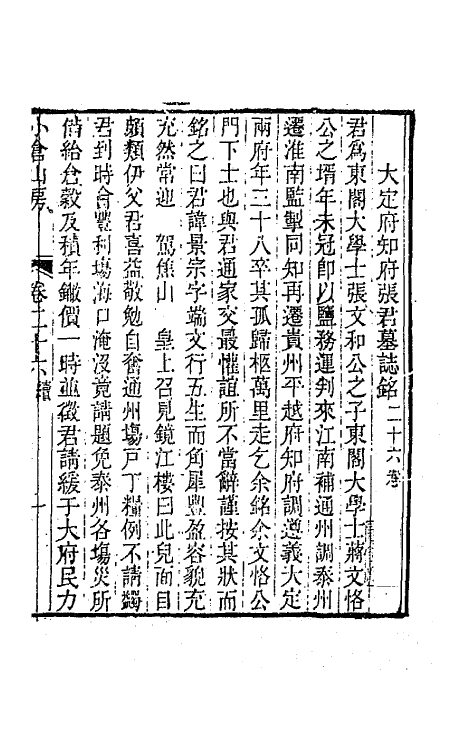 大定府知府張君墓誌銘二十六卷
君爲東閣大學士張文和公之子東閣大學士蔣文恪
公之壻年未冠卽以鹽務運判來江南補通州調泰州
遷淮南監掣同知再遷貴州平越府知府調遵義大定
兩府年三十八卒其孤歸柩萬里走乞余銘余文恪公
門下士也與君通家交最懽誼所不當辭謹按其狀而
銘之曰君諱景宗字端文行五生而角犀豐盈容貌充
充然常迎 駕焦山 皇上召見鏡江樓曰此兒面目
頗類伊父君喜益敬勉自奮通州塲戶丁糧例不請蠲
君到時會豐利塲海口淹沒竟請題免泰州各塲災所
借給倉穀及積年鐵價一時並徵君請緩于大府民力
小倉山房 卷二十六 續 一